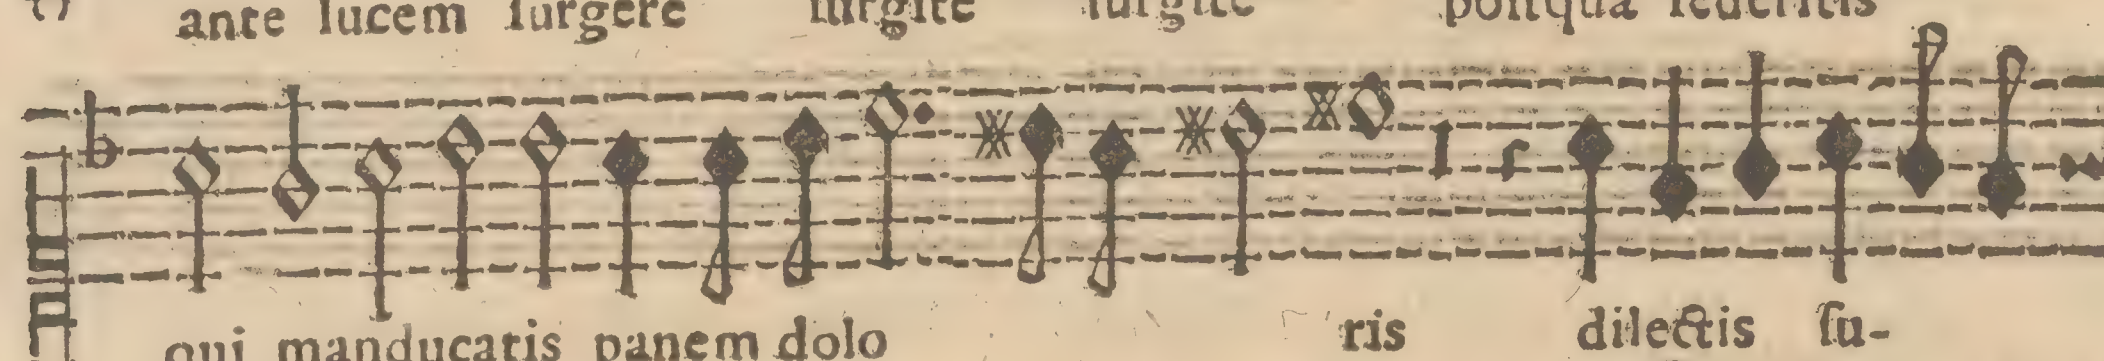 ante lucem ſurgere ſurgite ſurgite poſtquã ſederitis
qui manducatis panem dolo ris dilectis ſu-